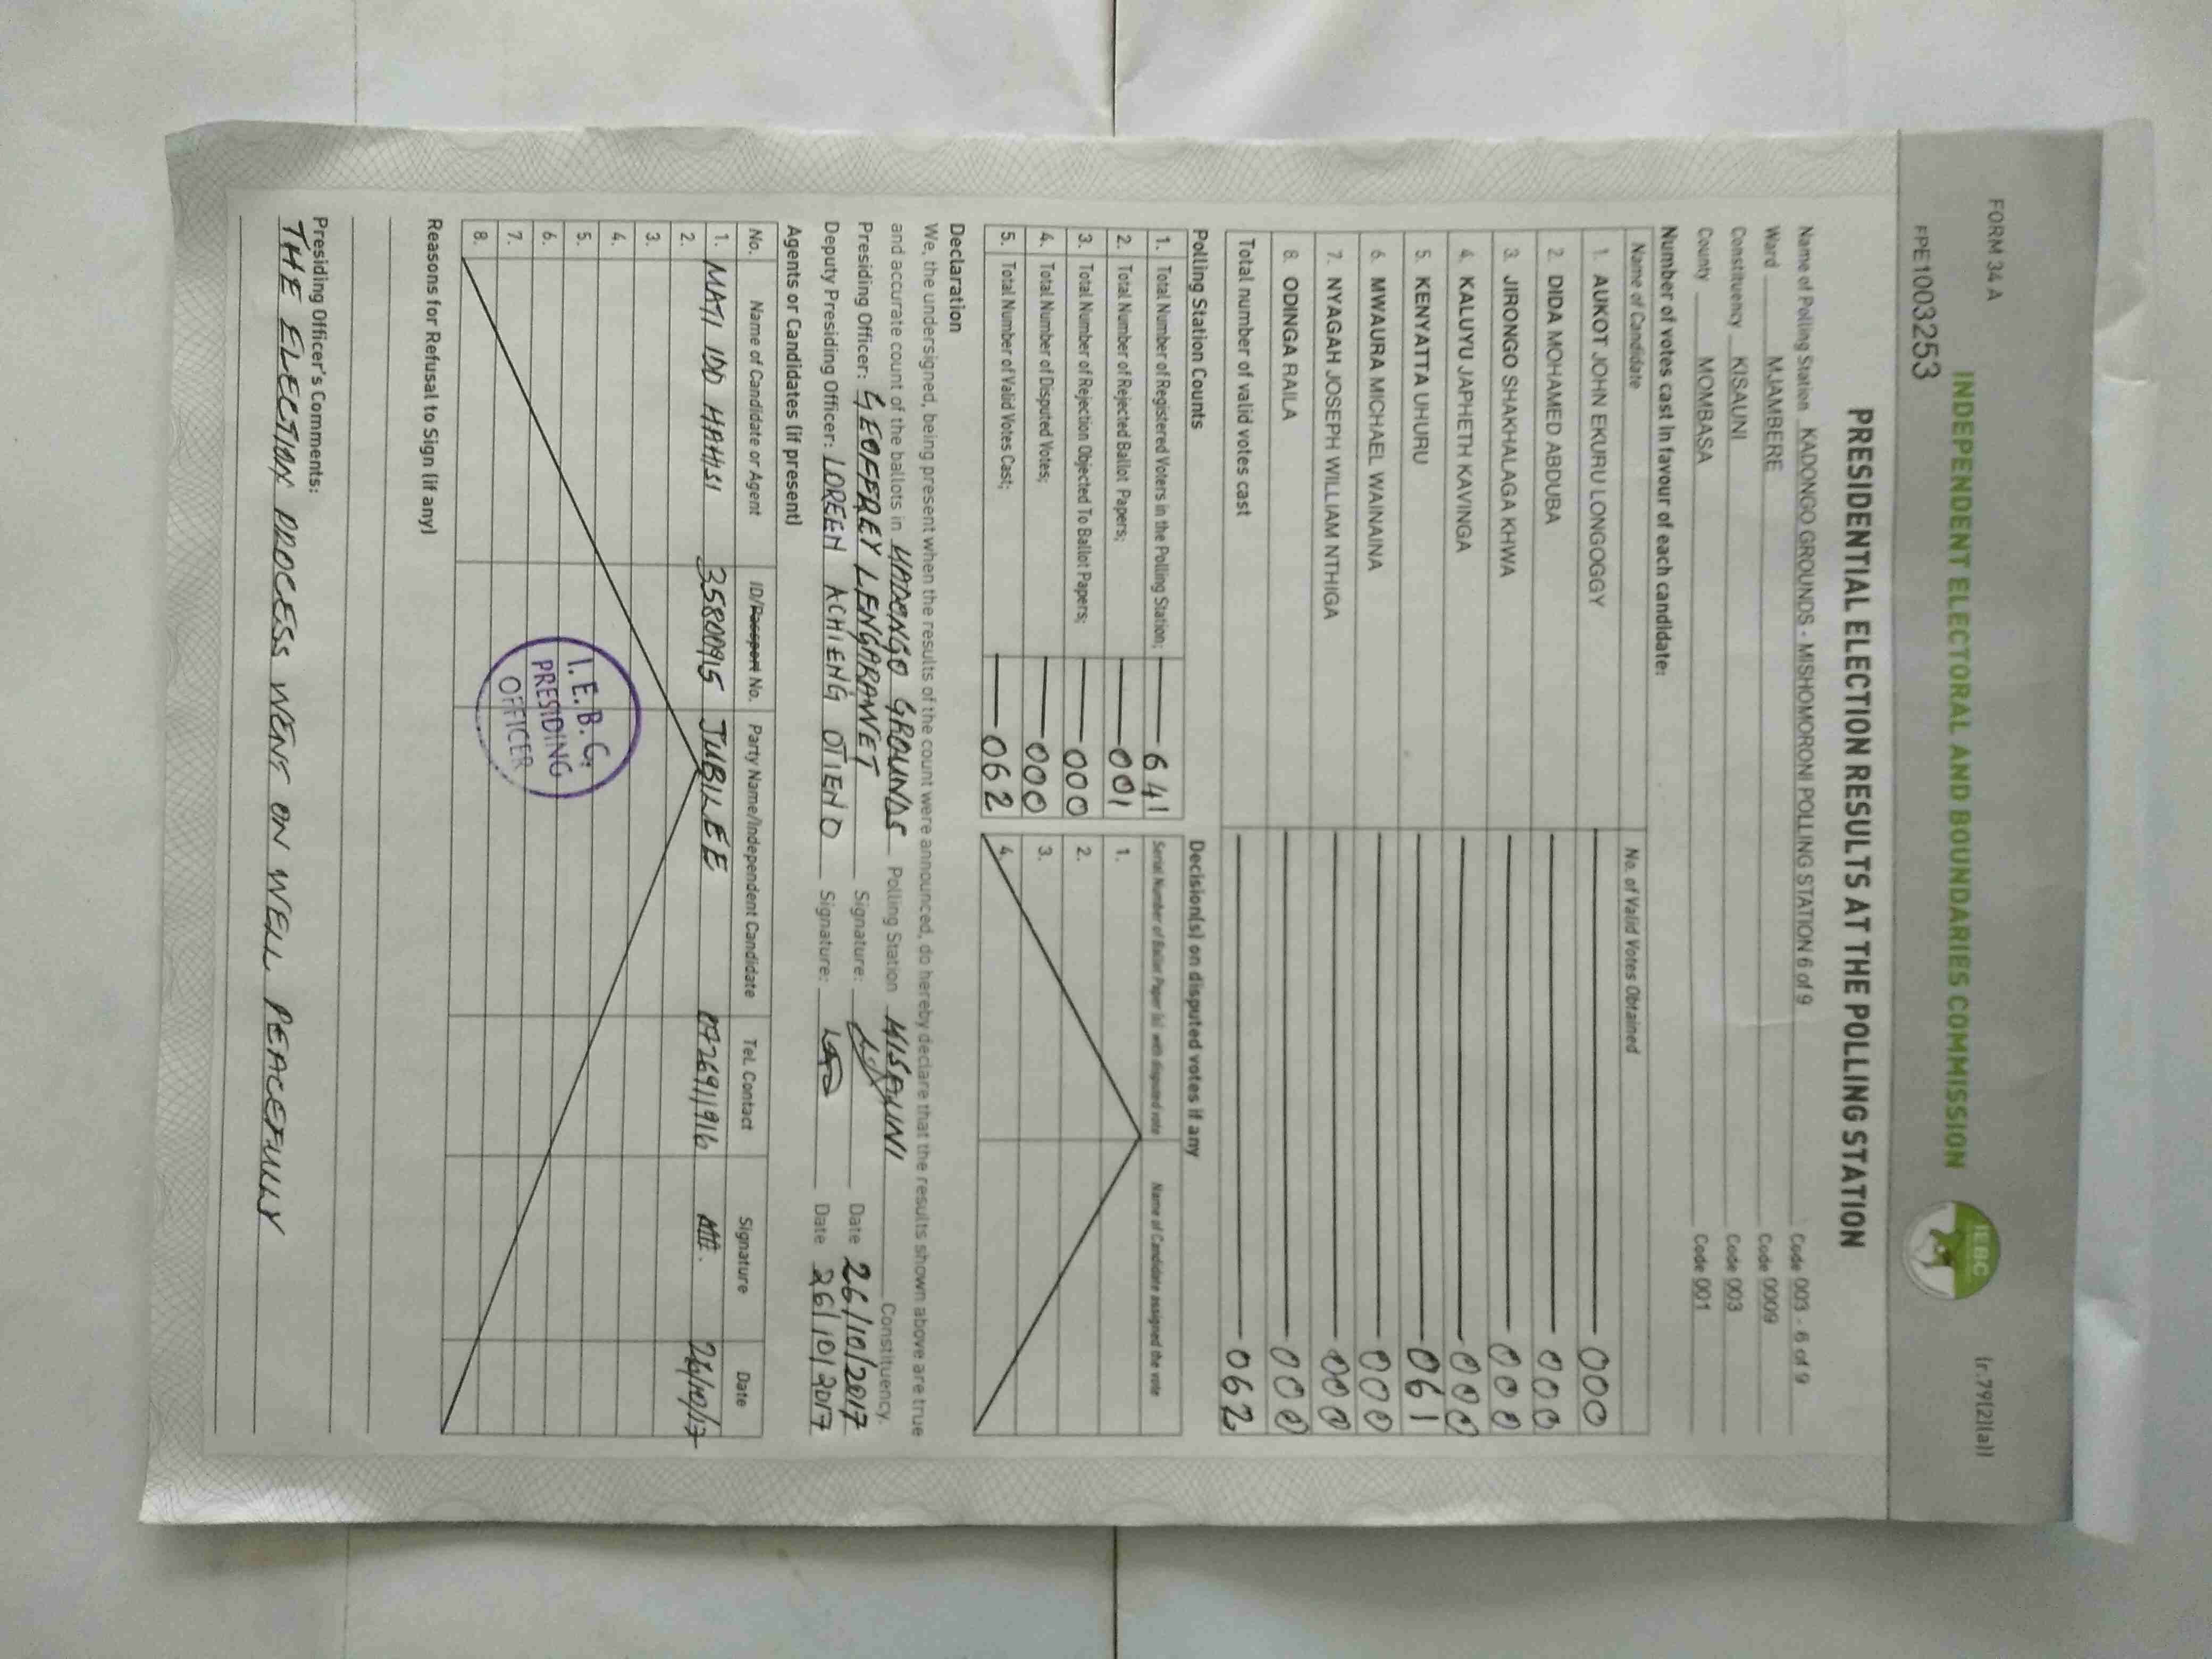 FORM 34 A
(r.79(2)(a))
INDEPENDENT ELECTORAL AND BOUNDARIES COMMISSION
IEBC
FPE1003253
PRESIDENTIAL ELECTION RESULTS AT THE POLLING STATION
Name of Polling Station KADONGO GROUNDS - MISHOMORONI POLLING STATION 6 of 9 Code 003 - 6 of 9
Ward MJAMBERE Code 0009
Constituency KISAUNI Code 003
County MOMBASA Code 001
Number of votes cast in favour of each candidate:
Name of Candidate No. of Valid Votes Obtained
1. AUKOT JOHN EKURU LONGOGGY 000
2. DIDA MOHAMED ABDUBA 000
3. JIRONGO SHAKHALAGA KHWA 000
4. KALUYU JAPHETH KAVINGA 000
5. KENYATTA UHURU 061
6. MWAURA MICHAEL WAINAINA 000
7. NYAGAH JOSEPH WILLIAM NTHIGA 000
8. ODINGA RAILA 000
Total number of valid votes cast 062
Polling Station Counts
1. Total Number of Registered Voters in the Polling Station; 641
2. Total Number of Rejected Ballot Papers; 001
3. Total Number of Rejection Objected To Ballot Papers; 000
4. Total Number of Disputed Votes; 000
5. Total Number of Valid Votes Cast; 062
Decision(s) on disputed votes if any
Serial Number of Ballot Paper (s) with disputed vote Name of Candidate assigned the vote
1.
2.
3.
4.
Declaration
We, the undersigned, being present when the results of the count were announced, do hereby declare that the results shown above are true
and accurate count of the ballots in KADONGO GROUNDS Polling Station KISAUNI Constituency.
Presiding Officer: GEOFFREY LENGARAWET Signature: Date 26/10/2017
Deputy Presiding Officer: LOREEN ACHIENG OTIENO Signature: Date 26/10/2017
Agents or Candidates (if present)
No. Name of Candidate or Agent ID/Passport No. Party Name/Independent Candidate Tel. Contact Signature Date
1. MATI IDD HAMISI 35800915 JUBILEE 0726911916 26/10/17
2.
3.
4.
5.
6.
7.
8.
I. E. B. C.
PRESIDING
OFFICER
Reasons for Refusal to Sign (if any)
Presiding Officer's Comments:
THE ELECTION PROCESS WENT ON WELL PEACEFULLY